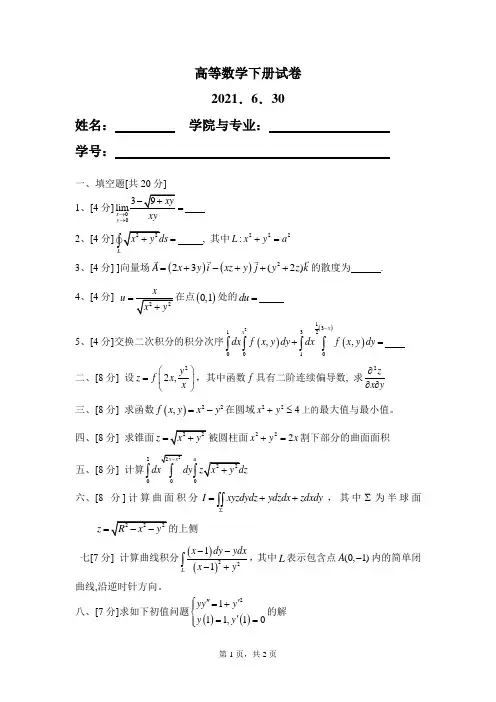 高等数学下册试卷
2021．6．30
姓名： 学院与专业：
学号：
一、填空题[共 20 分]
1、[4 分] $\lim\limits_{\substack{x\to 0\\ y\to 0}}\frac{3-\sqrt{9+xy}}{xy}=$
2、[4 分] $\oint_L \sqrt{x^2+y^2}ds=$ , 其中 $L:x^2+y^2=a^2$
3、[4 分] ]向量场 $\vec{A}=(2x+3y)\vec{i}-(xz+y)\vec{j}+(y^2+2z)\vec{k}$ 的散度为 .
4、[4 分] $u=\frac{x}{\sqrt{x^2+y^2}}$ 在点 $(0,1)$ 处的 $du=$
5、[4 分]交换二次积分的积分次序 $\int_0^1 dx\int_0^{x^2} f(x,y)dy+\int_1^3 dx\int_0^{\frac{1}{2}(3-x)} f(x,y)dy=$
二、[8 分] 设 $z=f\left(2x,\frac{y^2}{x}\right)$，其中函数 $f$ 具有二阶连续偏导数, 求 $\frac{\partial^2 z}{\partial x\partial y}$
三、[8 分] 求函数 $f(x,y)=x^2-y^2$ 在圆域 $x^2+y^2\leq 4$ 上的最大值与最小值。
四、[8 分] 求锥面 $z=\sqrt{x^2+y^2}$ 被圆柱面 $x^2+y^2=2x$ 割下部分的曲面面积
五、[8 分] 计算 $\int_0^2 dx\int_0^{\sqrt{2x-x^2}} dy\int_0^a z\sqrt{x^2+y^2}dz$
六、[8 分]计算曲面积分 $I=\iint_\Sigma xyzdydz+ydzdx+zdxdy$，其中 $\Sigma$ 为半球面
$z=\sqrt{R^2-x^2-y^2}$ 的上侧
七[7 分] 计算曲线积分 $\int_L \frac{(x-1)dy-ydx}{(x-1)^2+y^2}$，其中 $L$ 表示包含点 $A(0,-1)$ 内的简单闭
曲线,沿逆时针方向。
八、[7 分]求如下初值问题 $\begin{cases} yy''=1+y'^2\\ y(1)=1,y'(1)=0\end{cases}$ 的解
第 1 页，共 2 页